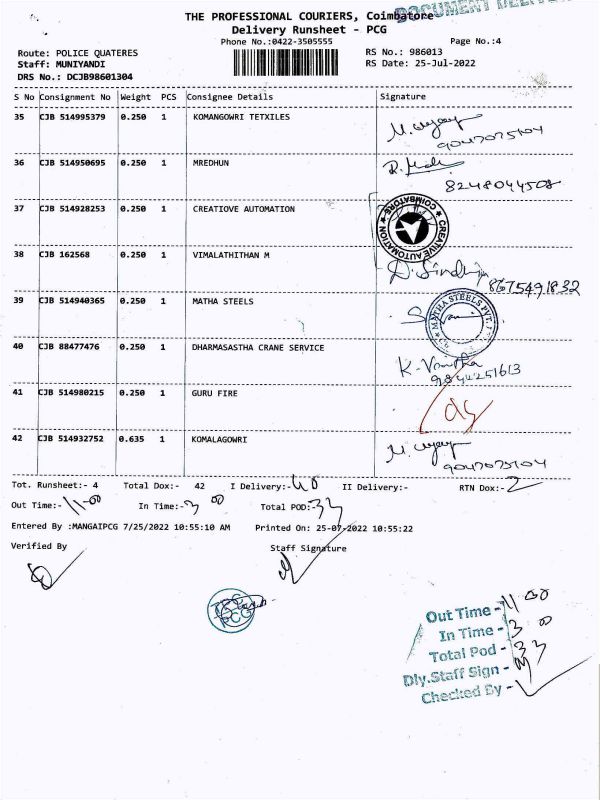 DOCUMENT DELIV
THE PROFESSIONAL COURIERS, Coimbatore
Delivery Runsheet - PCG
Phone No.:0422-3505555
Page No.:4
Route: POLICE QUATERES
RS No.: 986013
Staff: MUNIYANDI
RS Date: 25-Jul-2022
DRS No.: DCJB98601304
S No Consignment No Weight PCS Consignee Details Signature
35 CJB 514995379 0.250 1 KOMANGOWRI TETXILES
36 CJB 514950695 0.250 1 MREDHUN
8248044508
37 CJB 514928253 0.250 1 CREATIOVE AUTOMATION
COIMBATORE
CREATIVE AUTOMATION NATION
38 CJB 162568 0.250 1 VIMALATHITHAN M
8675491832
39 CJB 514940365 0.250 1 MATHA STEELS
MATHA STEELS PVT.
40 CJB 88477476 0.250 1 DHARMASASTHA CRANE SERVICE
K. Vanitha
9842251613
41 CJB 514980215 0.250 1 GURU FIRE
42 CJB 514932752 0.635 1 KOMALAGOWRI
Tot. Runsheet:- 4 Total Dox:- 42 I Delivery:- 40 II Delivery:- RTN Dox:- 2
Out Time:- 11-00 In Time:- 3 00 Total POD:- 33
Entered By :MANGAIPCG 7/25/2022 10:55:10 AM Printed On: 25-07-2022 10:55:22
Verified By Staff Signature
PCG
Out Time - 11 00
In Time - 3 00
Total Pod - 33
Dly.Staff Sign -
Checked By -